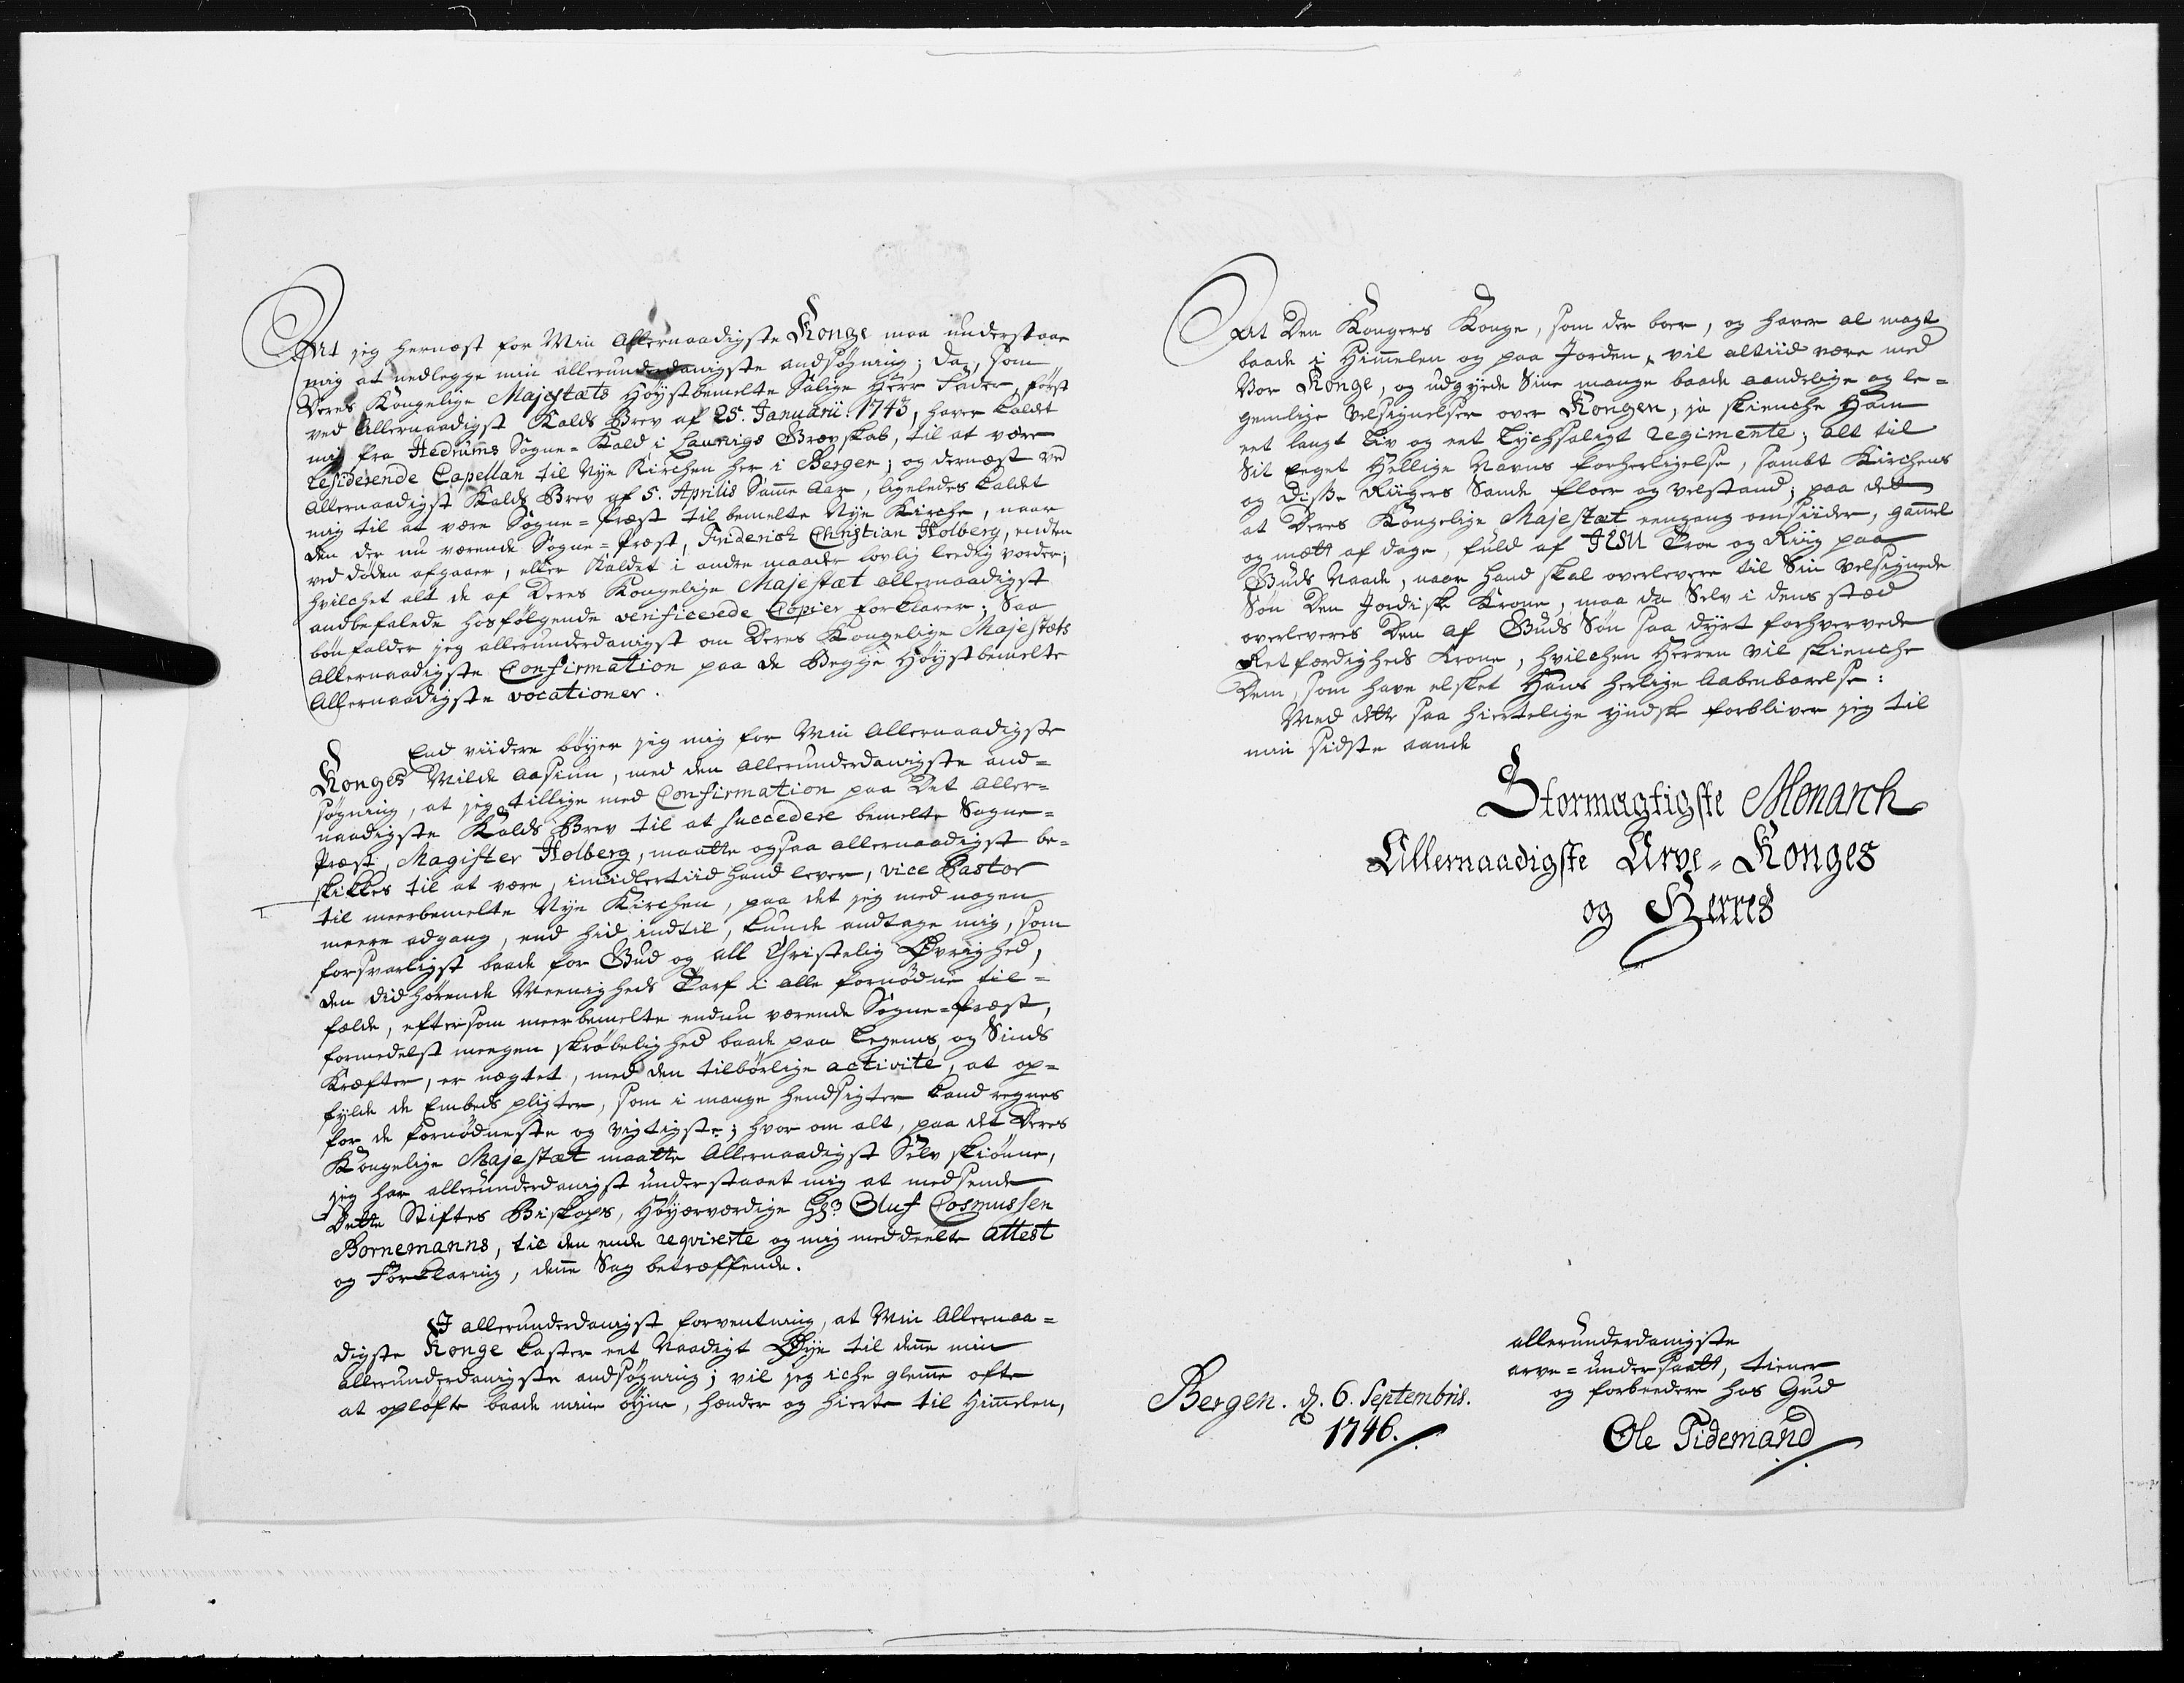 At jeg hernæst for Min Allernaadigste Konge maa understaae
mig at nedlegge min allerunderdanigste andsøgning; da, som
Deres Kongelige Majestæts Høystbemelte Salige Herr Fader, først
ved Allernaadigst Kalds Brev af 25. Januarii 1743, haver kaldt
mig fra Hedrums Sogne-Kald i Laurvigs Grevskab, til at være
residerende Capellan til Nye Kirchen her i Bergen; og dernæst ved
Allernaadigst Kalds Brev af 5. Aprilis Samme Aar, ligeledes kaldet
mig til at være Sogne-Præst til bemelte Nye Kirche, naar
den der nu værende Sogne-Præst, Friderich Christian Holberg, enten
ved døden afgaaer, eller Kaldet i andre maader lovlig leedig vorder;
hvilchet alt de af Deres Kongelige Majestæt allernaadigst
andbefalede hosfølgende verificerede Copier forklarer; Saa
bønfalder jeg allerunderdanigst om Deres Kongelige Majestæts
Allernaadigste Confirmation paa de Begge Høystbemelte
Allernaadigste vocationer.
End viidere bøyer jeg mig for Min Allernaadigste
Konges Milde Aasiun, med den Allerunderdanigste and-
søgning, at jeg tillige med Confirmation paa Det Aller-
naadigste Kalds Brev til at succedere bemelte Sogne-
Præst, Magister Holberg, maatte ogsaa allernaadigst be-
skikkes til at være, imidlertiid hand lever, vice Pastor
til meerbemelte Nye Kirchen, paa det jeg med nogen
meere adgang, end hid indtil, kunde andtage mig, som
forsvarligst baade for Gud og all Christelig Øvrighed,
den didhørende Meenigheds Tarf i alle fornødne til-
fælde, eftersom meerbemelte endnu værende Sogne-Præst,
formedelst meegen skrøbelighed baade paa Legems og Sinds
Kræfter, er nægtet, med den tilbørlige activité, at op-
fylde de Embeds pligter, som i mange hendsigter kand regnes
for de fornødneste og vigtigste; hvor om alt, paa det Deres
Kongelige Majestæt maatte Allernaadigst Selv skiønne,
jeg har allerunderdanigst understaaet mig at medsende
Dette Stiftes Biskops, Høyærværdige Hr. Oluf Cosmussen
Bornemanns, til den ende requirerte og mig meddeelte Attest
og Forklaring, denne Sag betræffende.
I allerunderdanigst forventning, at Min Allernaa-
digste Konge kaster eet Naadigt Øye til denne min
allerunderdanigste andsøgning; vil jeg iche glemme ofte
at opløfte baade mine øyne, hænder og hierte til Himmelen,
At Den Kongers Konge, som der boer, og haver al magt
baade i Himmelen og paa Jorden, vil altiid være med
Vor Konge, og udgyde Sine mange baade aandelige og le-
gemlige Velsignelser over Kongen, ja skienche Ham
eet langt Liv og eet Lychsaligt regimente; alt til
Sit Eeget Hellige Navns forherligelse, sambt Kirchens
og disse Riigers Sande floer og velstand; paa det
at Deres Kongelige Majestæt eengang omsiider, gammel
og mætt af dage, fuld af JESU Troe og Riig paa
Guds Naade, naar hand skal overlevere til Sin velsignede
Søn Den Jordiske Krone, maa da Selv i dens sted
overleveres Den af Guds Søn saa dyrt forhvervede
Retfærdigheds Krone, hvilchen Herren vil skienche
Dem, som have elsket Hans herlige Aabenbarelse:
Med dette saa hiertelige ynske forbliver jeg til
min sidste aande
Stormagtigste Monarch
Allernaadigste Arve-Konges
og Herres
allerunderdanigste
arve-undersaatt, tiener
og forbeedere hos Gud
Bergen. d. 6. Septembris.
1746.
Ole Tidemand